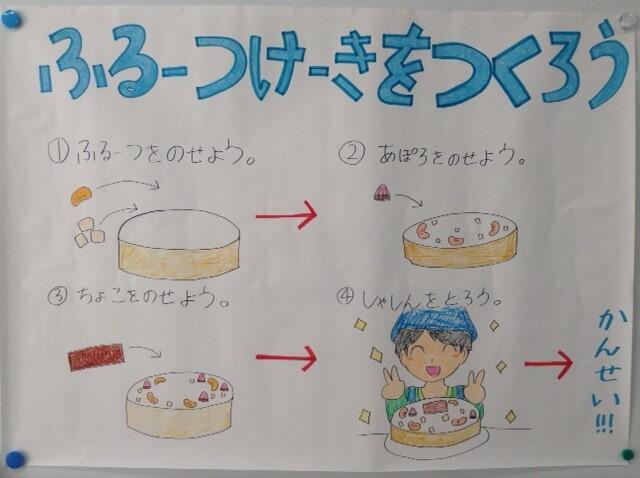 ふるーつけーきをつくろう
①ふるーつをのせよう。
②あぽろをのせよう。
③ちょこをのせよう。
④しゃしんをとろう。
かんせい!!!